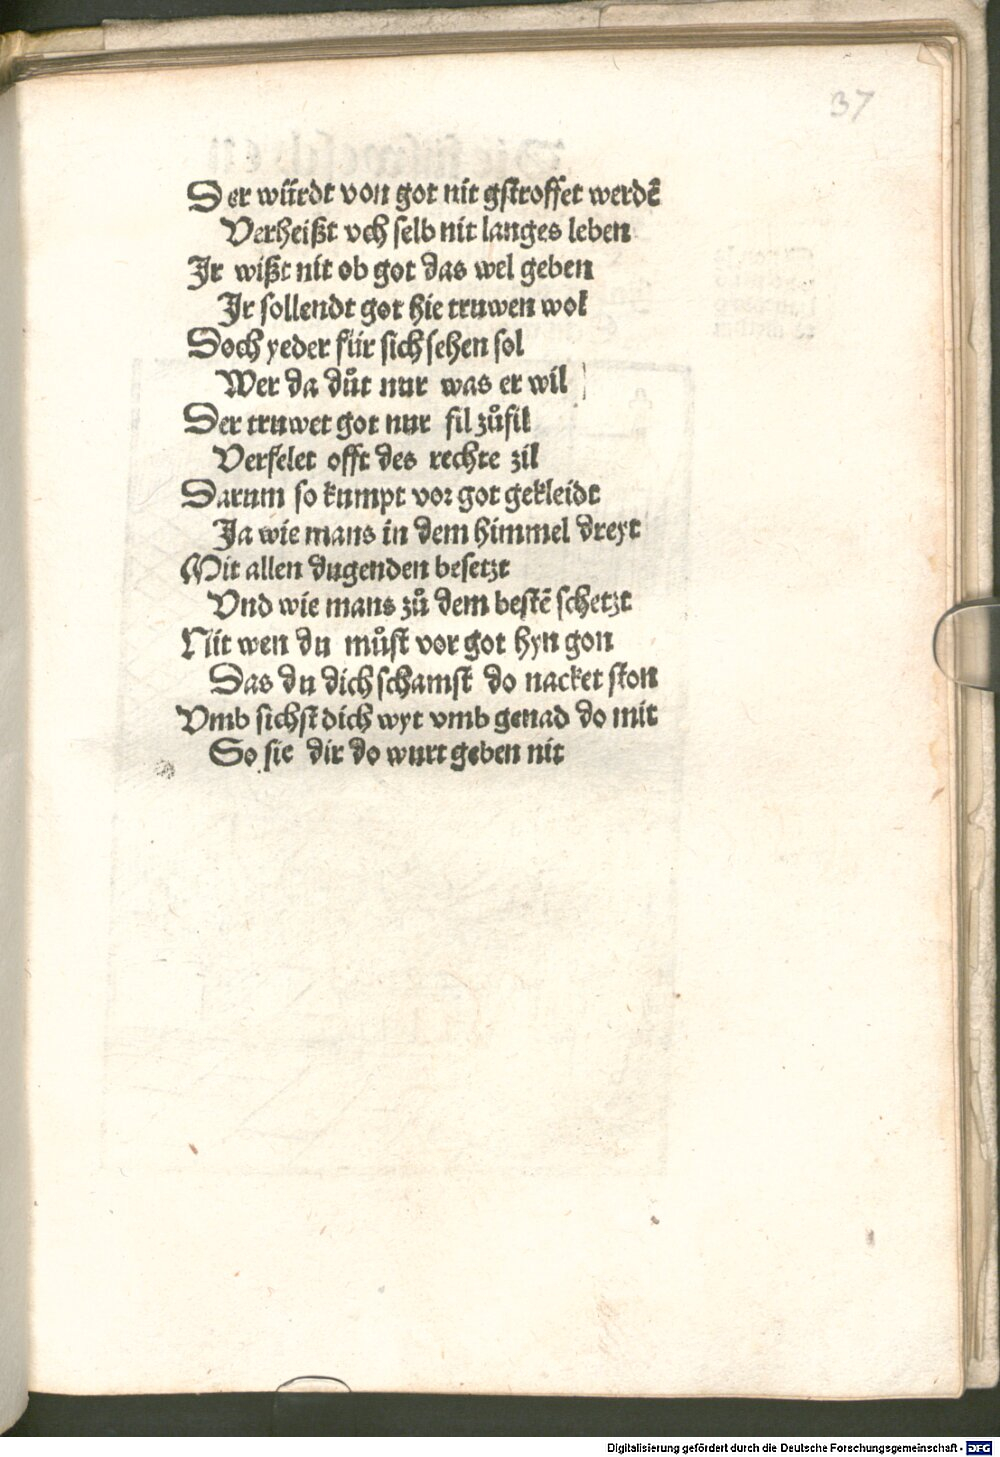 37
Der würdt von got nit gstroffet werdē
Verheißt vch selb nit langes leben
Jr wißt nit ob got das wel geben
Jr sollendt got hie truwen wol
Doch yeder für sich sehen sol
Wer da důt nur was er wil
Der truwet got nur fil zůfil
Verfelet offt des rechte zil
Darum so kumpt vor got gekleidt
Ja wie mans in dem himmel dreyt
Mit allen dugenden besetzt
Vnd wie mans zů dem bestē schetzt
Nit wen du můst vor got hyn gon
Das du dich schamst do nacket ston
Vmb sichst dich wyt vmb genad do mit
So sie dir do wurt geben nit
Digitalisierung gefördert durch die Deutsche Forschungsgemeinschaft - DFG